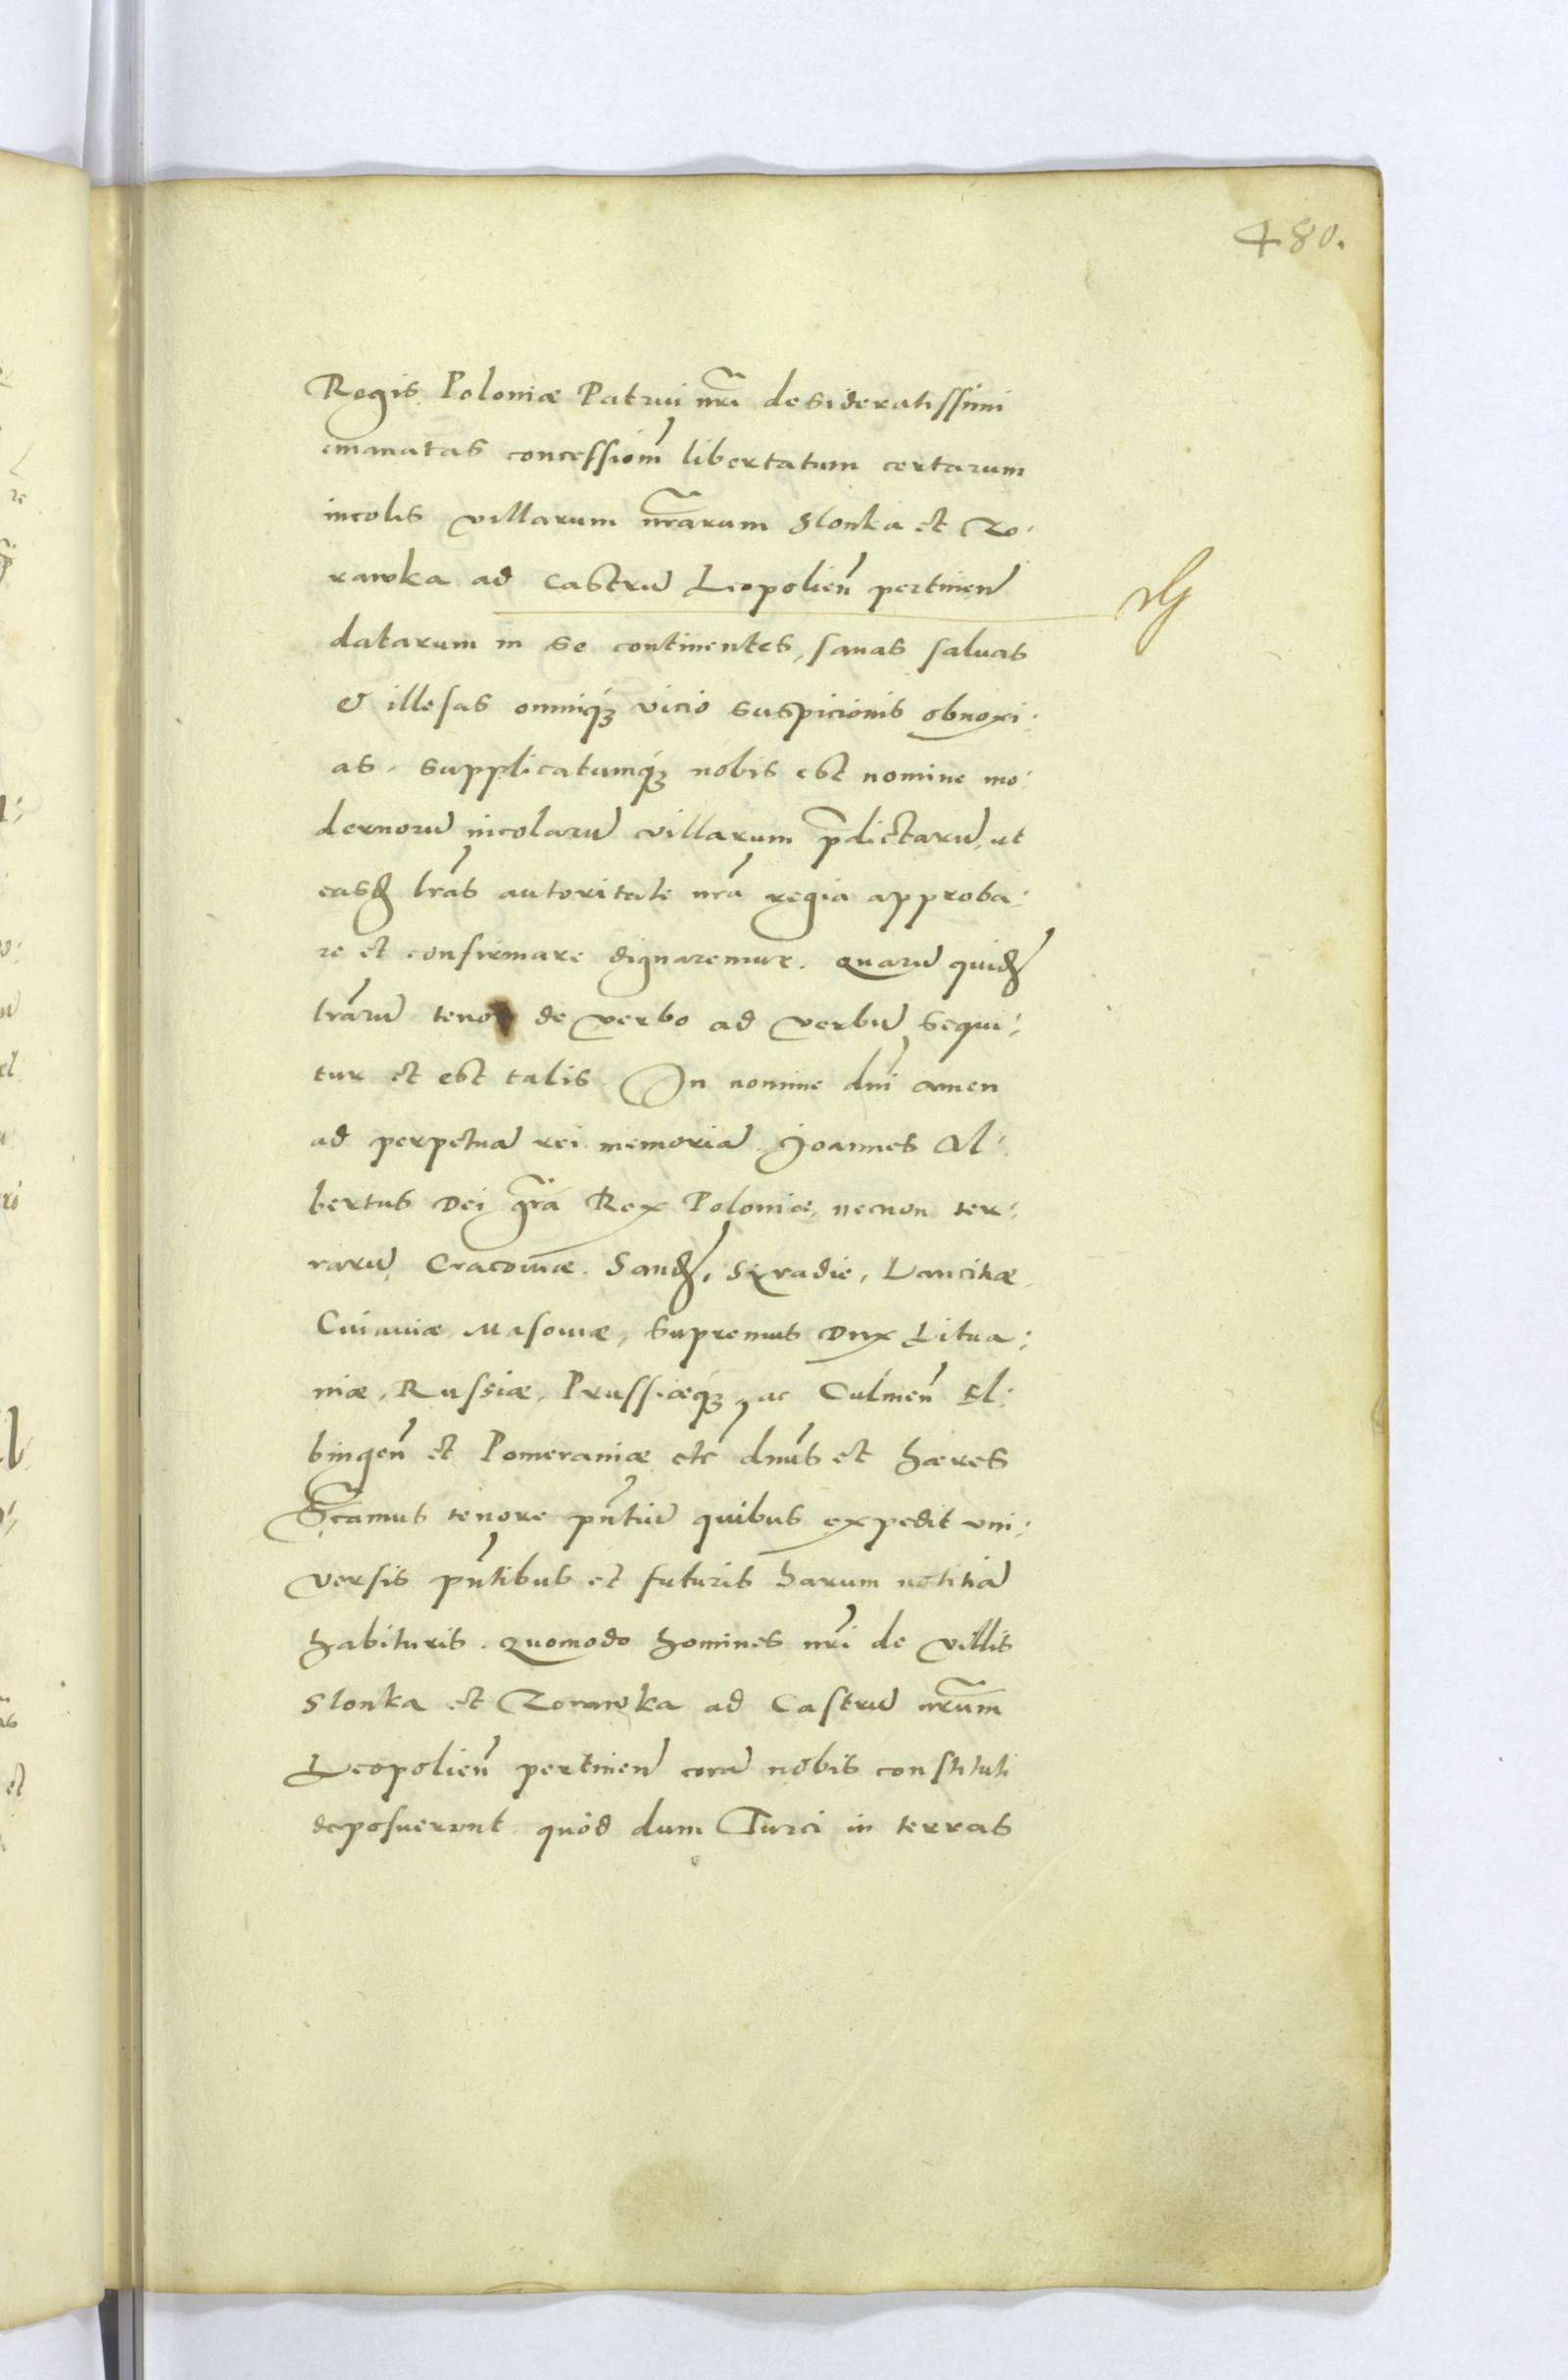 480.
Regis Poloniæ Patrui nrĩ desideratissimi
emanatas concessioñ libertatum certarum
incolis villarum nrãrum Slonka et Zo:
rawka ad Castrũ Leopolieñ pertineñ
datarum in se continentes, sanas saluas
& illesas omniq́ꝫ vicio suspicionis obnoxi:
as. Supplicatumq́ꝫ nobis est nomine mo:
dernorũ incolarũ villarum p̃dictarũ, ut
easđ lrãs autoritate nrã regia approba:
re et confirmare dignaremur. Quarũ quiđ
lrãrũ tenor de verbo ad verbũ sequi:
tur et est talis. In nomine dnĩ amen
ad perpetuã rei memoriã. Joannes Al:
bertus Dei grã Rex Poloniæ, necnon ter:
rarũ Cracouiæ. Sanđ, Syradie, Lancitiæ
Cuiauiæ, Masouiæ, Supremus Dux Litua:
niæ, Russiæ, Prussiæq́ꝫ, ac Culmeñ El:
bingeñ et Pomeraniæ etc dnũs et hæres
S̃camus tenore pñtiũ quibus expedit vni:
versis pñtibus et futuris harum notitiã
habituris. Quomodo homines nrĩ de villis
Slonka et Zorawka ad Castrũ nrũm
Leopolieñ pertineñ corã nobis constituti
deposuerunt quòd dum Turci in terras